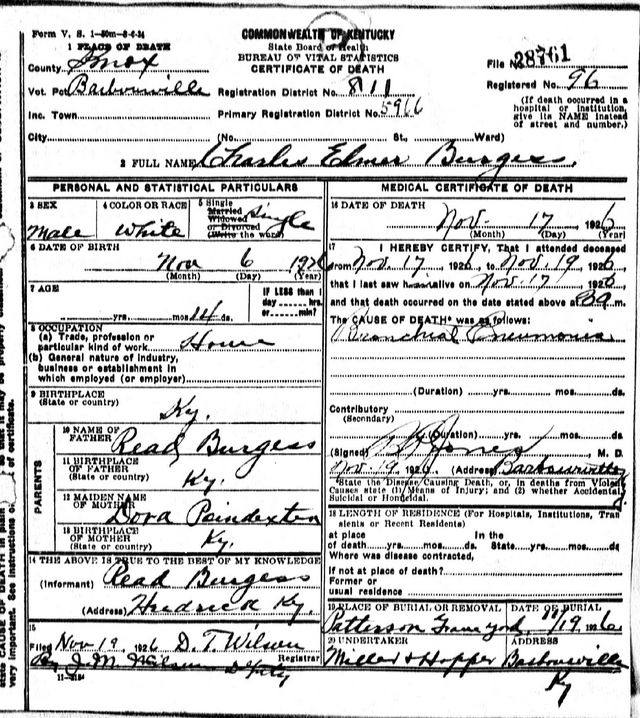 Form V. S. 1-50m-8-6-24
COMMONWEALTH OF KENTUCKY
State Board of Health
BUREAU OF VITAL STATISTICS
CERTIFICATE OF DEATH
1 PLACE OF DEATH
County Knox
Vot. Pct Barbourville
Inc. Town
City
Registration District No. 811
Primary Registration District No. 5966
(No. St., Ward)
File No. 28761
Registered No. 96
(If death occurred in a
hospital or institution,
give its NAME instead
of street and number.)
2 FULL NAME Charles Elmer Burgess.
PERSONAL AND STATISTICAL PARTICULARS
3 SEX
Male
4 COLOR OR RACE
White
5 Single
Married
Widowed
or Divorced
(Write the word)
Single
6 DATE OF BIRTH
Nov 6 1926
(Month) (Day) (Year)
7 AGE
yrs. mos. 14 ds.
IF LESS than 1
day hrs.
or min?
8 OCCUPATION
(a) Trade, profession or
particular kind of work Home
(b) General nature of industry,
business or establishment in
which employed (or employer)
9 BIRTHPLACE
(State or country)
Ky.
PARENTS
10 NAME OF
FATHER Read Burgess
11 BIRTHPLACE
OF FATHER
(State or country) Ky.
12 MAIDEN NAME
OF MOTHER Dora Poindexter
13 BIRTHPLACE
OF MOTHER
(State or country) Ky.
14 THE ABOVE IS TRUE TO THE BEST OF MY KNOWLEDGE
(Informant) Read Burgess
(Address) Ky.
15
Filed Nov 19, 1926 D. T. Wilson
Registrar
By J. M. Wilson Deputy
11-3184
MEDICAL CERTIFICATE OF DEATH
16 DATE OF DEATH
Nov. 17 1926
(Month) (Day) (Year)
17 I HEREBY CERTIFY, That I attended deceased
from Nov. 17 1926 to Nov. 19 1926,
that I last saw h alive on Nov. 17 1926
and that death occurred on the date stated above at 3 a m.
The CAUSE OF DEATH* was as follows:
Bronchial Pneumonia
(Duration) yrs. mos. ds.
Contributory
(Secondary)
(Duration) yrs. mos. ds.
(Signed) Jones M. D.
Nov. 19 1926 (Address) Barbourville
*State the Disease Causing Death, or, in deaths from Violent
Causes state (1) Means of Injury; and (2) whether Accidental,
Suicidal or Homicidal.
18 LENGTH OF RESIDENCE (For Hospitals, Institutions, Tran
sients or Recent Residents)
at place In the
of death yrs. mos. ds. State yrs. mos. ds.
Where was disease contracted,
if not at place of death?
Former or
usual residence
19 PLACE OF BURIAL OR REMOVAL
Patterson Grave yard
DATE OF BURIAL
11/19 1926
20 UNDERTAKER
Miller & Hopper
ADDRESS
Barbourville
Ky